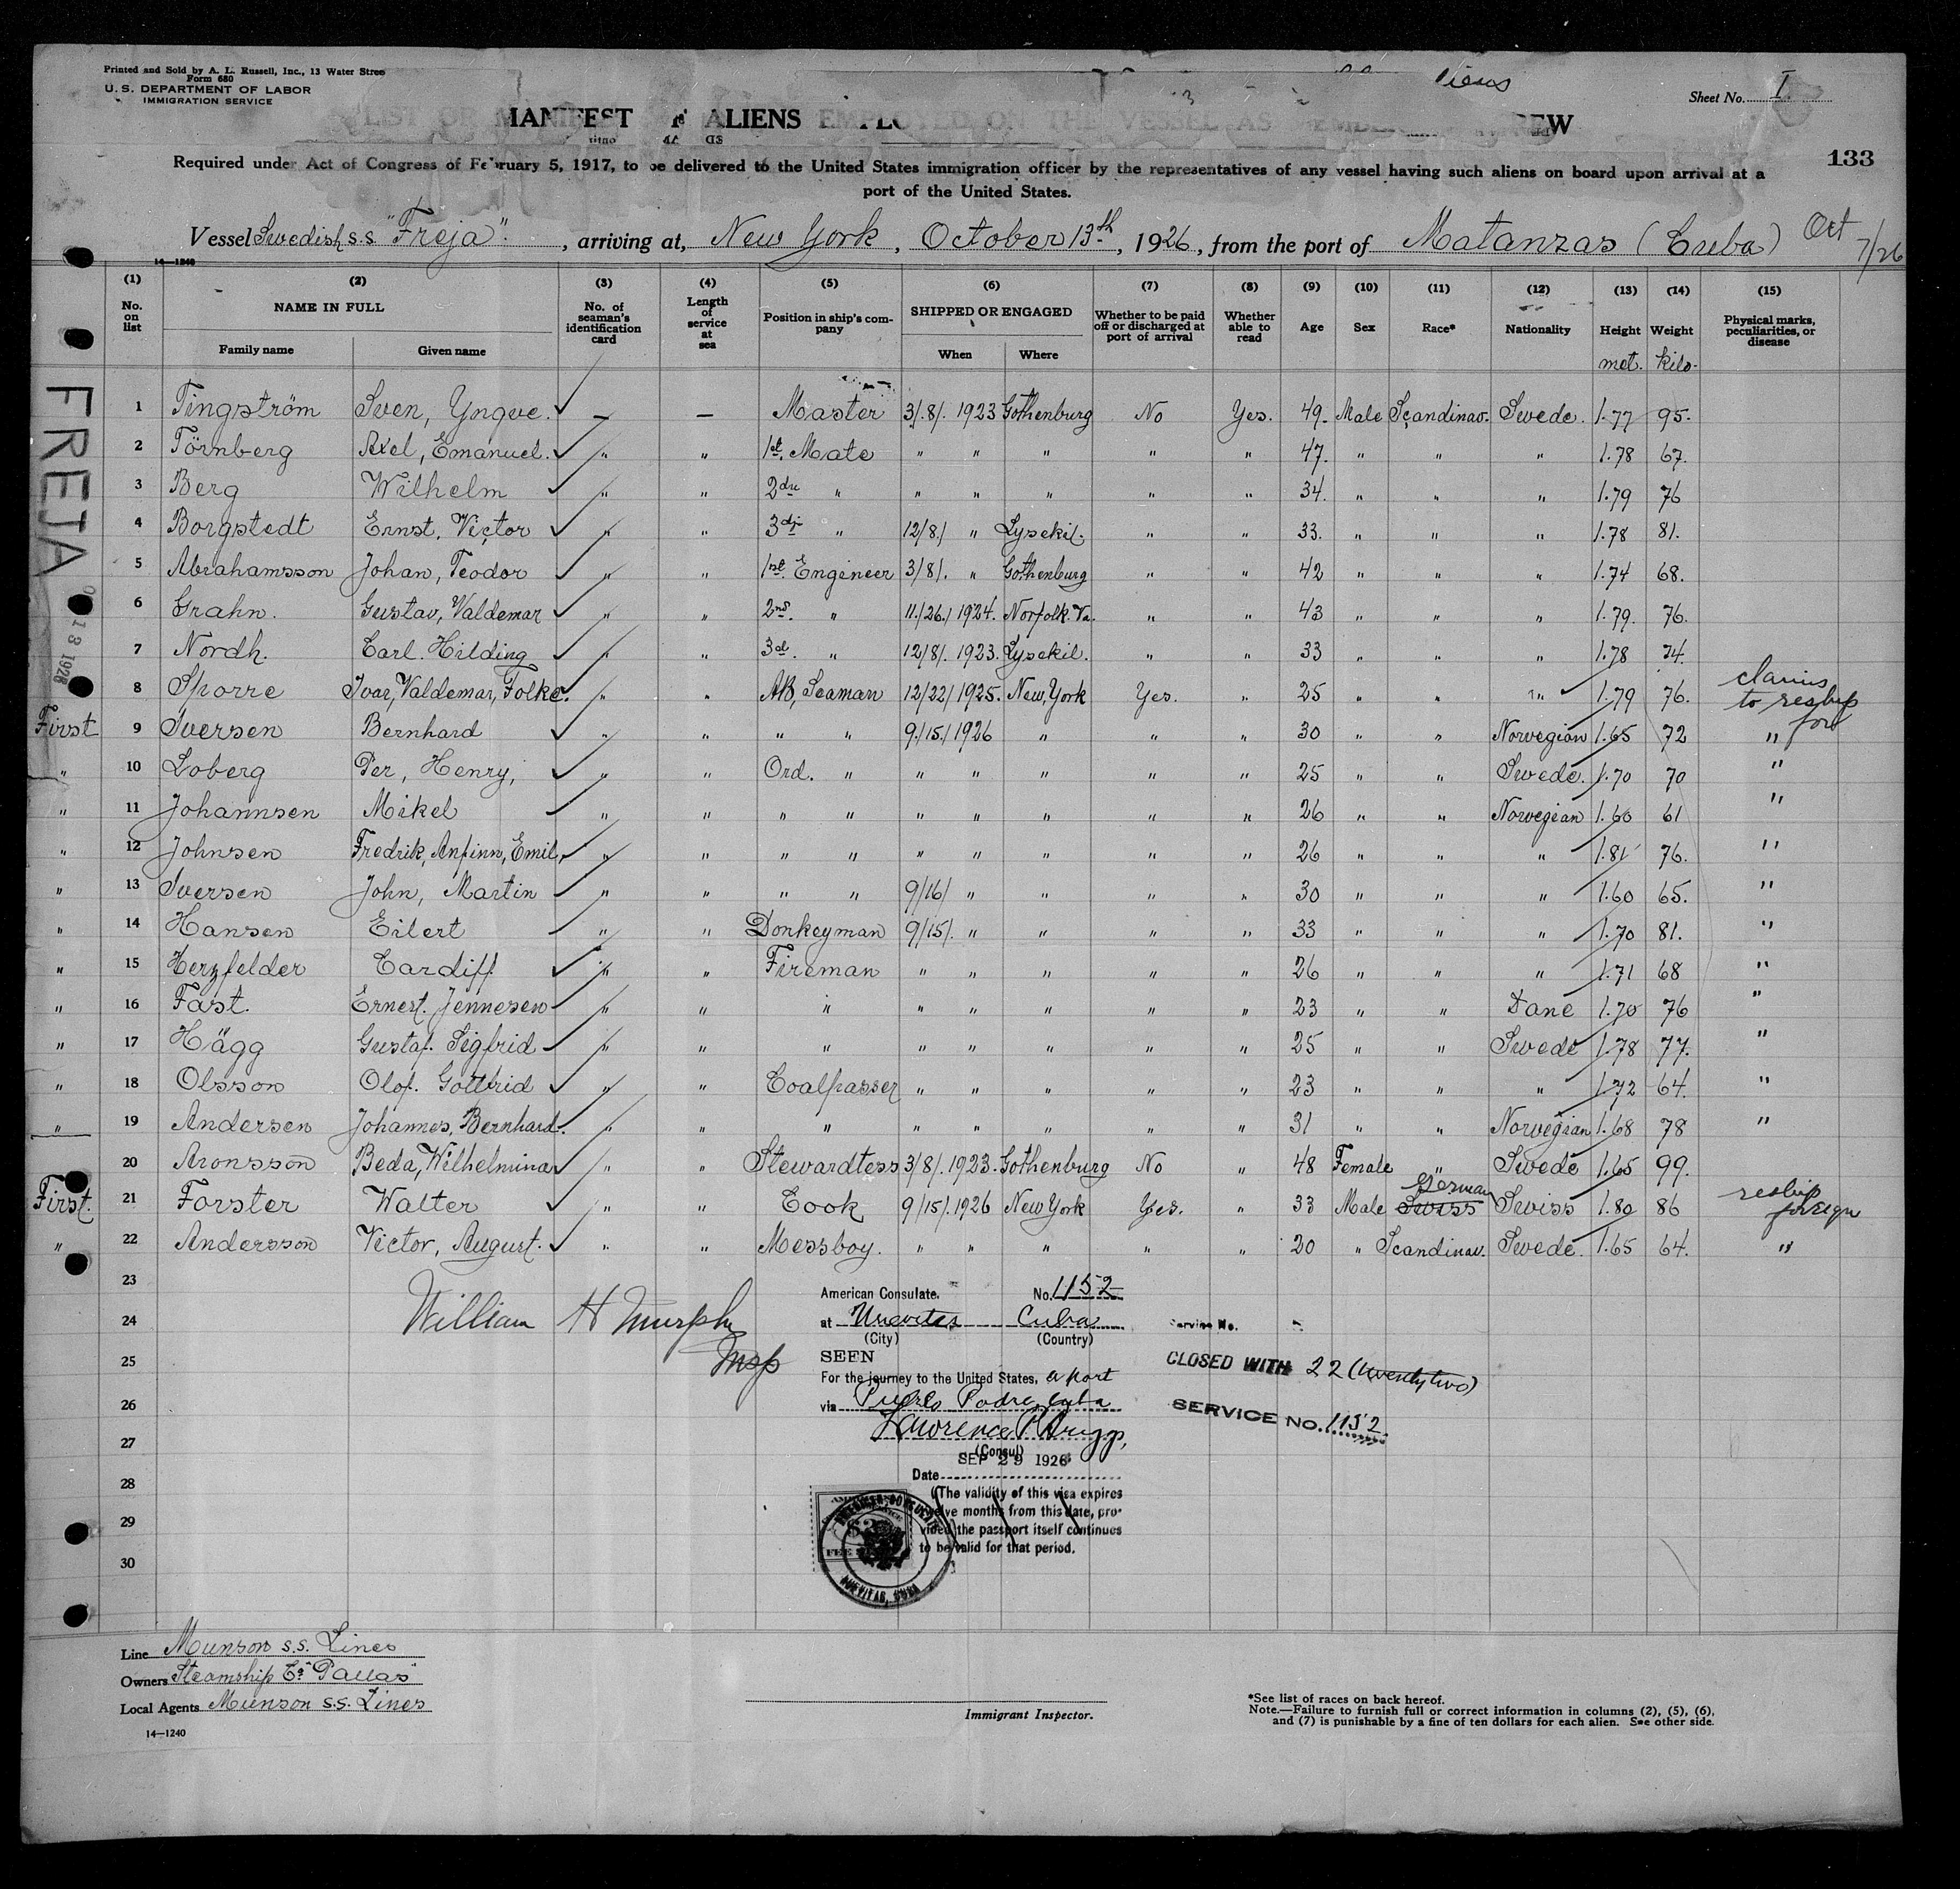 Printed and Sold by A. L. Russell, Inc., 13 Water Stree
Form 680
U. S. DEPARTMENT OF LABOR
IMMIGRATION SERVICE
Sheet No. I
LIST OR MANIFEST OF ALIENS EMPLOYED ON THE VESSEL AS MEMBERS CREW
133
Required under Act of Congress of February 5, 1917, to be delivered to the United States immigration officer by the representatives of any vessel having such aliens on board upon arrival at a
port of the United States.
Vessel Swedish s.s "Freja". , arriving at, New York, October 13th, 1926, from the port of Matanzas (Cuba) Oct 7/26
14—1240
(1) (2) (3) (4) (5) (6) (7) (8) (9) (10) (11) (12) (13) (14) (15)
No. on list NAME IN FULL Family name Given name No. of seaman's identification card Length of service at sea Position in ship's company SHIPPED OR ENGAGED When Where Whether to be paid off or discharged at port of arrival Whether able to read Age Sex Race* Nationality Height Weight Physical marks, peculiarities, or disease
met. kilo.
FREJA
1 Tingström Sven, Yngve. — — Master 3/8/. 1923 Gothenburg No Yes. 49. Male Scandinav. Swede. 1.77 95.
2 Törnberg Axel, Emanuel. " " 1st. Mate " " " " " 47. " " " 1.78 67.
3 Berg Wilhelm " " 2dre " " " " " " 34. " " " 1.79 76
4 Borgstedt Ernst, Victor " " 3dji " 12/8./ " Lysekil. " " 33. " " " 1.78 81.
5 Abrahamsson Johan, Teodor " " 1st. Engineer 3/8/. " Gothenburg " " 42 " " " 1.74 68.
6 Grahn. Gustav, Valdemar " " 2nd. " 11./26./ 1924. Norfolk. Va. " " 43 " " " 1.79. 76.
7 Nordh. Carl. Hilding " " 3d. " 12/8/. 1923. Lysekil. " " 33 " " " 1.78 74.
8 Sporre Ivar, Valdemar, Folke. " " AB, Seaman 12/22/ 1925. New, York Yes. " 25 " " " 1.79 76. claims to reship for
First 9 Iversen Bernhard " " " " 9./15./ 1926 " " " 30 " " Norwegian 1.65 72 "
" 10 Loberg Per, Henry, " " Ord. " " " " " " 25 " " Swede. 1.70 70 "
" 11 Johannsen Mikel " " " " " " " " " 26 " " Norwegian 1.60 61 "
" 12 Johnsen Fredrik, Anfinn, Emil, " " " " " " " " " 26 " " " 1.81 76. "
" 13 Iversen John, Martin " " " " 9/16/ " " " " 30 " " " 1.60 65. "
" 14 Hansen Eilert " " Donkeyman 9/15/. " " " " 33 " " " 1.70 81. "
" 15 Herzfelder Cardiff " " Fireman " " " " " 26 " " " 1.71 68 "
" 16 Fast. Ernest. Jennesen " " " " " " " " 23 " " Dane 1.70 76 "
" 17 Hägg Gustaf. Sigfrid " " " " " " " " 25 " " Swede 1.78 77. "
" 18 Olsson Olof. Gottfrid " " Coalpasser " " " " " 23 " " " 1.72 64. "
" 19 Andersen Johannes, Bernhard. " " " " " " " " 31 " " Norwegian 1.68 78 "
20 Aronsson Beda, Wilhelmina " " Stewardtess 3/8/. 1923. Gothenburg No " 48 Female " Swede 1.65 99.
First. 21 Forster Walter " " Cook 9/15/. 1926 New York Yes. " 33 Male Swiss German Swiss 1.80 86 reship foreign
" 22 Andersson Victor, August. " " Messboy. " " " " " 20 " Scandinav. Swede. 1.65 64. "
23
24
25
26
27
28
29
30
William H Murphy
Insp
American Consulate. No. 1152
at Nuevitas Cuba
(City) (Country)
SEEN
For the journey to the United States, a port
via Puerto Padre, Cuba
Lawrence P. Briggs,
(Consul)
SEP 29 1926
Date
(The validity of this visa expires
twelve months from this date, pro-
vided the passport itself continues
to be valid for that period.
AMERICAN CONSULATE
NUEVITAS, CUBA
Service No.
CLOSED WITH 22 (twentytwo)
SERVICE NO. 1152
Line Munson s.s. Lines
Owners Steamship Co "Pallas"
Local Agents Munson s.s. Lines
14—1240
Immigrant Inspector.
*See list of races on back hereof.
Note.—Failure to furnish full or correct information in columns (2), (5), (6),
and (7) is punishable by a fine of ten dollars for each alien. See other side.